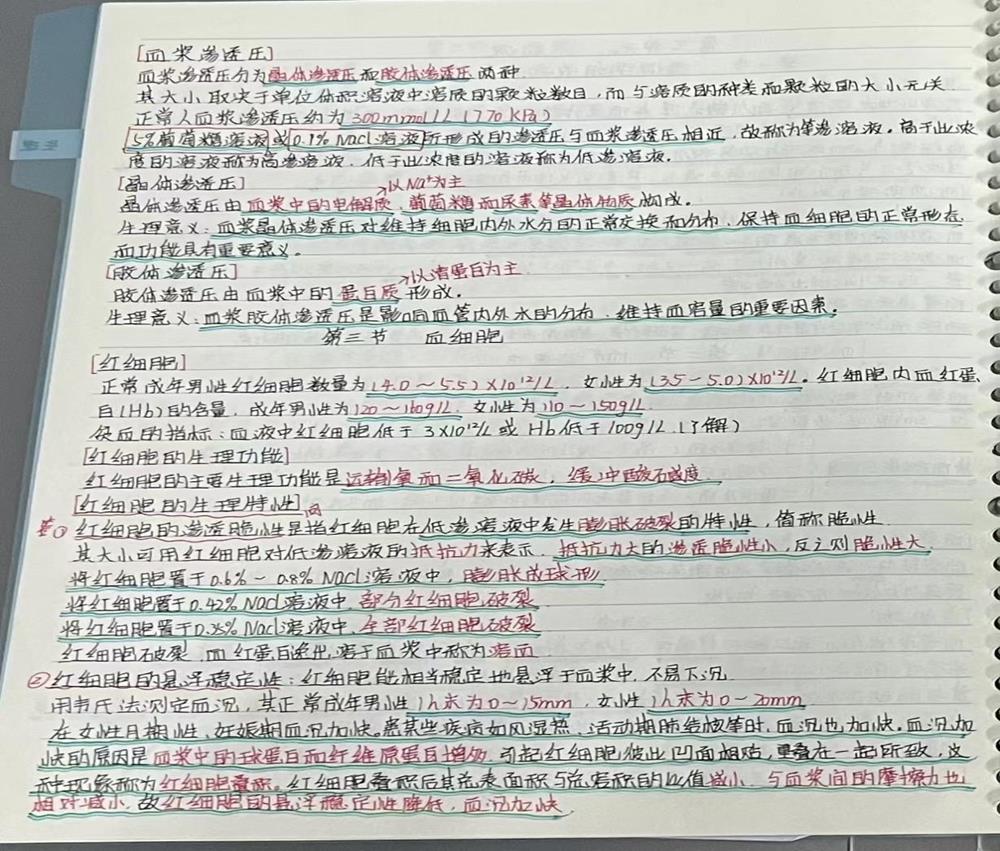 [血浆渗透压]
血浆渗透压分为晶体渗透压和胶体渗透压两种
其大小取决于单位体积溶液中溶质的颗粒数目,而与溶质的种类和颗粒的大小无关
正常人血浆渗透压约为300mmol/L(770KPa)
5%葡萄糖溶液或0.9%NaCl溶液所形成的渗透压与血浆渗透压相近,故称为等渗溶液。高于此浓
度的溶液称为高渗溶液,低于此浓度的溶液称为低渗溶液。
[晶体渗透压] →以Na⁺为主
晶体渗透压由血浆中的电解质、葡萄糖和尿素等晶体物质构成。
生理意义:血浆晶体渗透压对维持细胞内外水分的正常交换和分布、保持血细胞的正常形态
和功能具有重要意义。
[胶体渗透压] →以清蛋白为主
胶体渗透压由血浆中的蛋白质形成。
生理意义:血浆胶体渗透压是影响血管内外水的分布、维持血容量的重要因素。
第三节 血细胞
[红细胞]
正常成年男性红细胞数量为(4.0~5.5)×10¹²/L,女性为(3.5~5.0)×10¹²/L。红细胞内血红蛋
白(Hb)的含量,成年男性为120~160g/L,女性为110~150g/L
贫血的指标:血液中红细胞低于3×10¹²/L或Hb低于100g/L(了解)
[红细胞的生理功能]
红细胞的主要生理功能是运输氧和二氧化碳,缓冲酸碱度
[红细胞的生理特性]
①红细胞的渗透脆性是指红细胞在低渗溶液中发生膨胀破裂的特性,简称脆性
其大小可用红细胞对低渗溶液的抵抗力来表示,抵抗力大的渗透脆性小,反之则脆性大
将红细胞置于0.6%~0.8%NaCl溶液中,膨胀成球形
将红细胞置于0.42%NaCl溶液中,部分红细胞破裂
将红细胞置于0.35%NaCl溶液中,全部红细胞破裂
红细胞破裂,血红蛋白逸出,溶于血浆中称为溶血
②红细胞的悬浮稳定性:红细胞能相当稳定地悬浮于血浆中,不易下沉
用韦氏法测定血沉,其正常成年男性1h末为0~15mm,女性1h末为0~20mm
在女性月期性,妊娠期血沉加快。患某些疾病如风湿热、活动期肺结核等时,血沉也加快。血沉加
快的原因是血浆中的球蛋白和纤维原蛋白增多,引起红细胞彼此凹面相贴,重叠在一起所致,这
种现象称为红细胞叠积。红细胞叠积后其总表面积与总容积的比值减小,与血浆间的摩擦力也
相对减小,故红细胞的悬浮稳定性降低,血沉加快